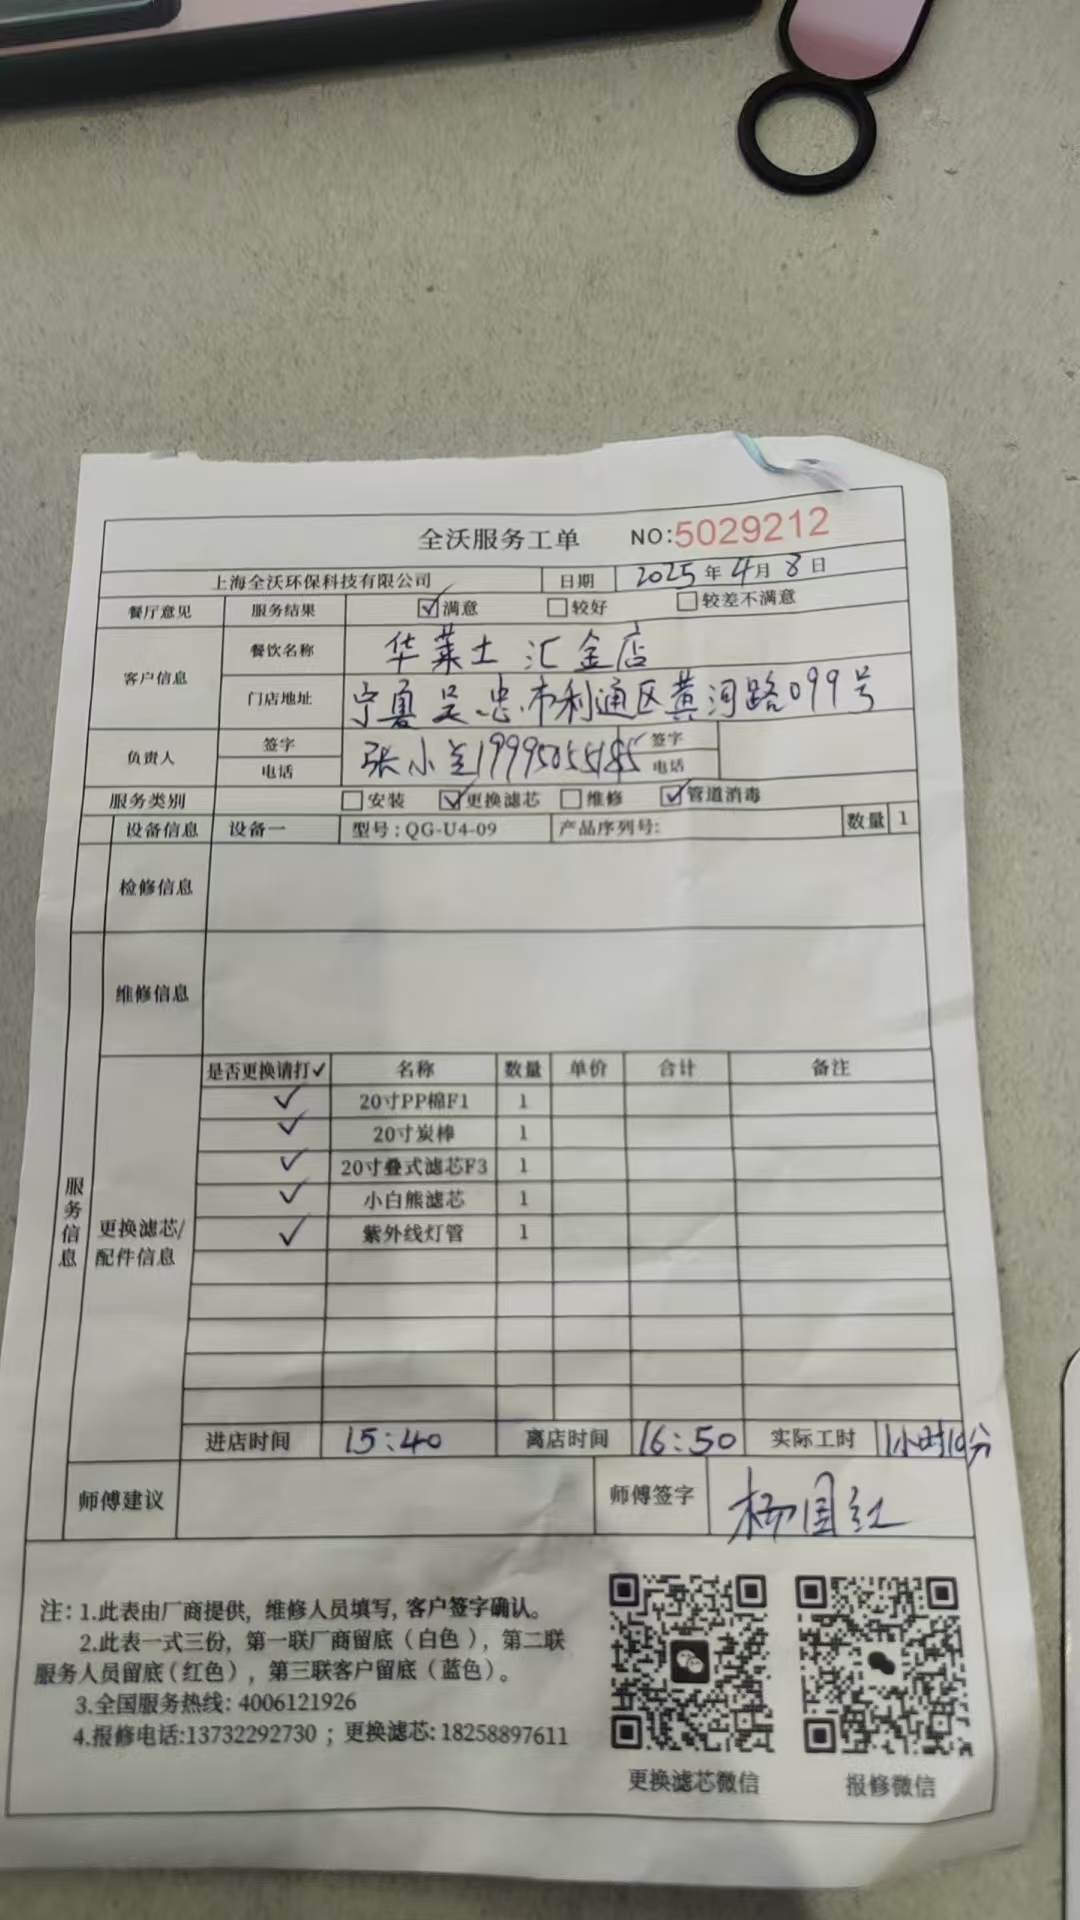 全沃服务工单 NO:5029212
上海全沃环保科技有限公司 日期 2025年4月8日
餐厅意见 服务结果 ☑满意 ☐较好 ☐较差不满意
客户信息 餐饮名称 华莱士 汇金店
门店地址 宁夏吴忠市利通区黄河路099号
负责人 签字 电话 张小 19995055185 签字 电话
服务类别 ☐安装 ☑更换滤芯 ☐维修 ☑管道消毒
设备信息 设备一 型号:QG-U4-09 产品序列号: 数量 1
检修信息
维修信息
服务信息
更换滤芯/配件信息
是否更换请打✓ 名称 数量 单价 合计 备注
✓ 20寸PP棉F1 1
✓ 20寸炭棒 1
✓ 20寸叠式滤芯F3 1
✓ 小白熊滤芯 1
✓ 紫外线灯管 1
进店时间 15:40 离店时间 16:50 实际工时 1小时10分
师傅建议 师傅签字 杨国红
注: 1.此表由厂商提供, 维修人员填写, 客户签字确认。
2.此表一式三份, 第一联厂商留底(白色), 第二联
服务人员留底(红色), 第三联客户留底(蓝色)。
3.全国服务热线: 4006121926
4.报修电话:13732292730 ; 更换滤芯: 18258897611
更换滤芯微信 报修微信